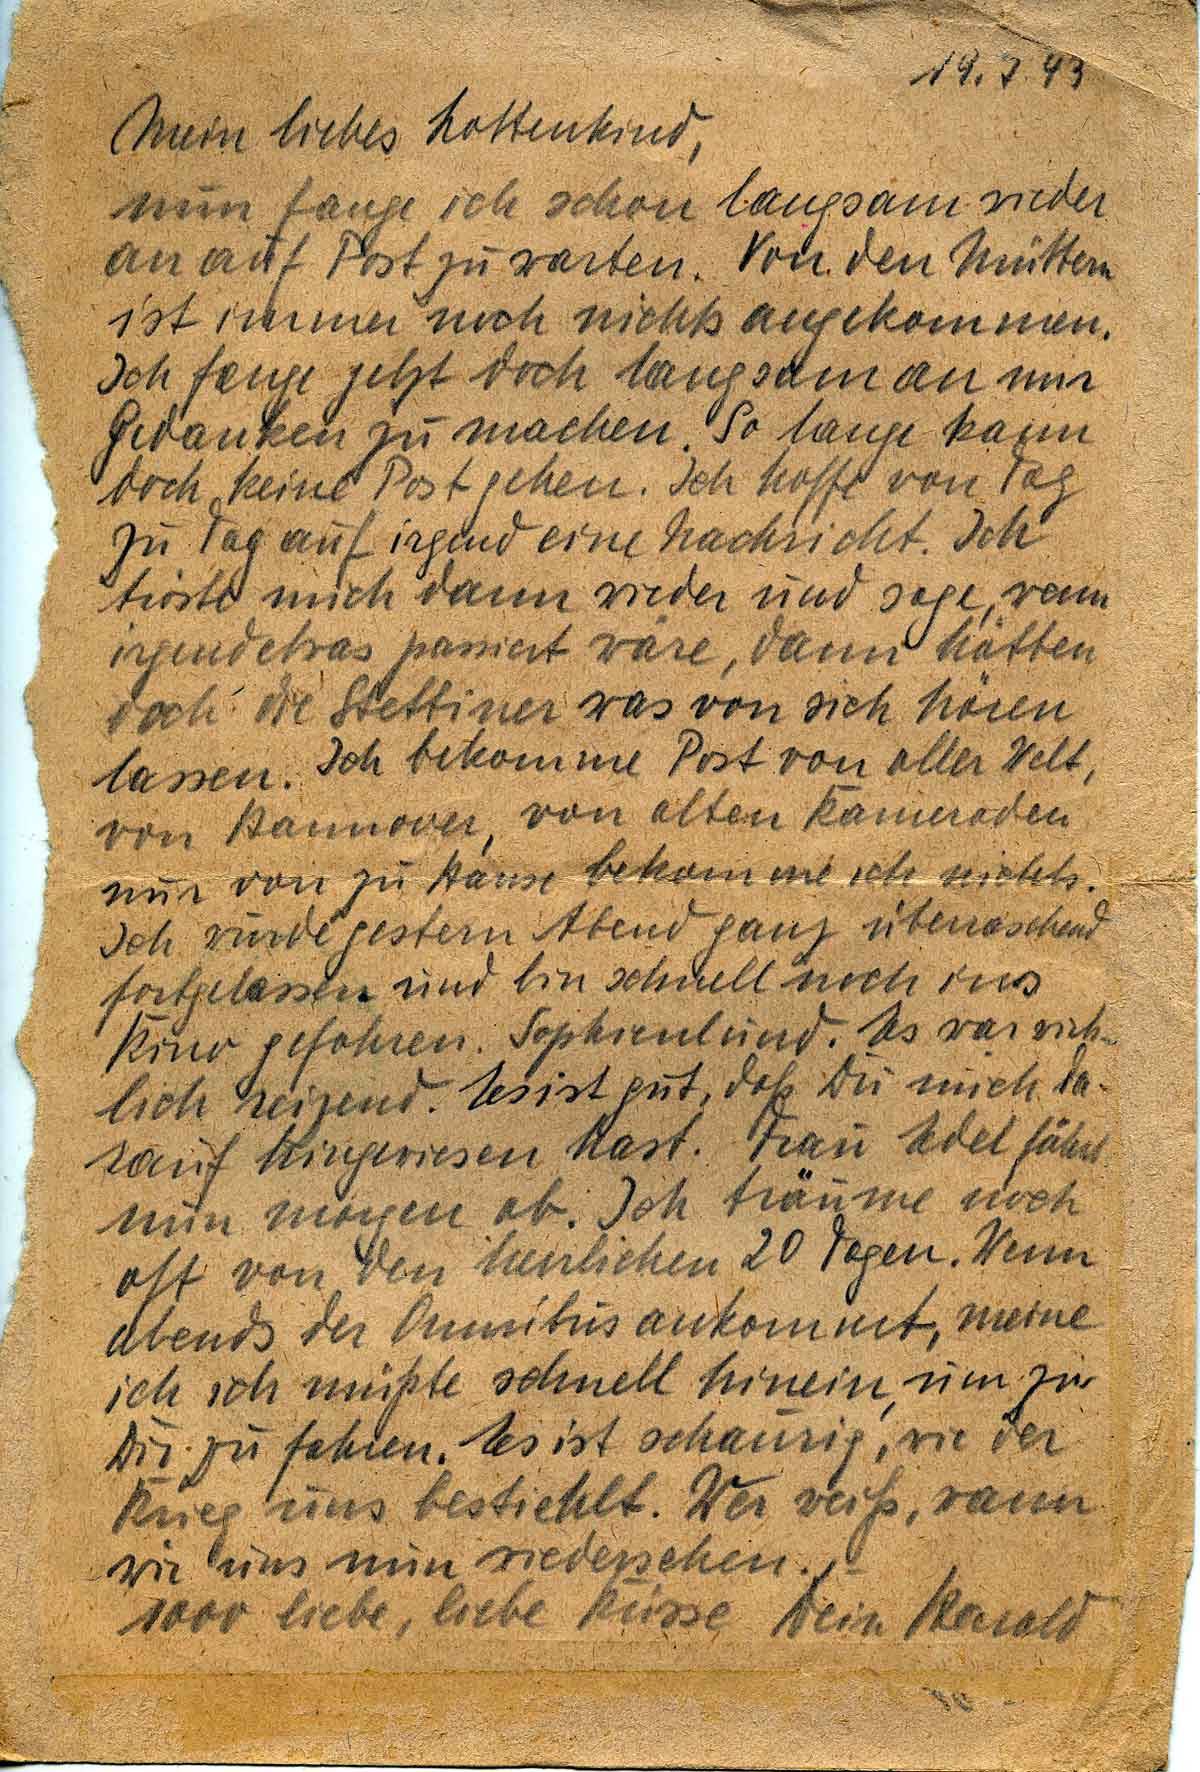 19.7.43
Mein liebes Lottenkind,
nun fange ich schon langsam wieder
an auf Post zu warten. Von den Müttern
ist immer noch nichts angekommen.
Ich fange jetzt doch langsam an mir
Gedanken zu machen. So lange kann
doch keine Post gehen. Ich hoffe von Tag
zu Tag auf irgend eine Nachricht. Ich
tröste mich dann wieder und sage, wenn
irgendetwas passiert wäre, dann hätten
doch die Stettiner was von sich hören
lassen. Ich bekomme Post von aller Welt,
von Hannover, von alten Kameraden
nur von zu Hause bekomme ich nichts.
Ich wurde gestern Abend ganz überraschend
fortgelassen und bin schnell noch ins
Kino gefahren. Sophienlund. Es war wirk-
lich reizend. Es ist gut, daß Du mich da-
rauf hingewiesen hast. Frau Edel fährt
nun morgen ab. Ich träume noch
oft von den herrlichen 20 Tagen. Wenn
abends der Omnibus ankommt, meine
ich ich müßte schnell hinein, um zu
Dir zu fahren. Es ist schaurig, wie der
Krieg uns bestiehlt. Wer weiß, wann
wir uns nun wiedersehen.
1000 liebe, liebe Küsse Dein Harald